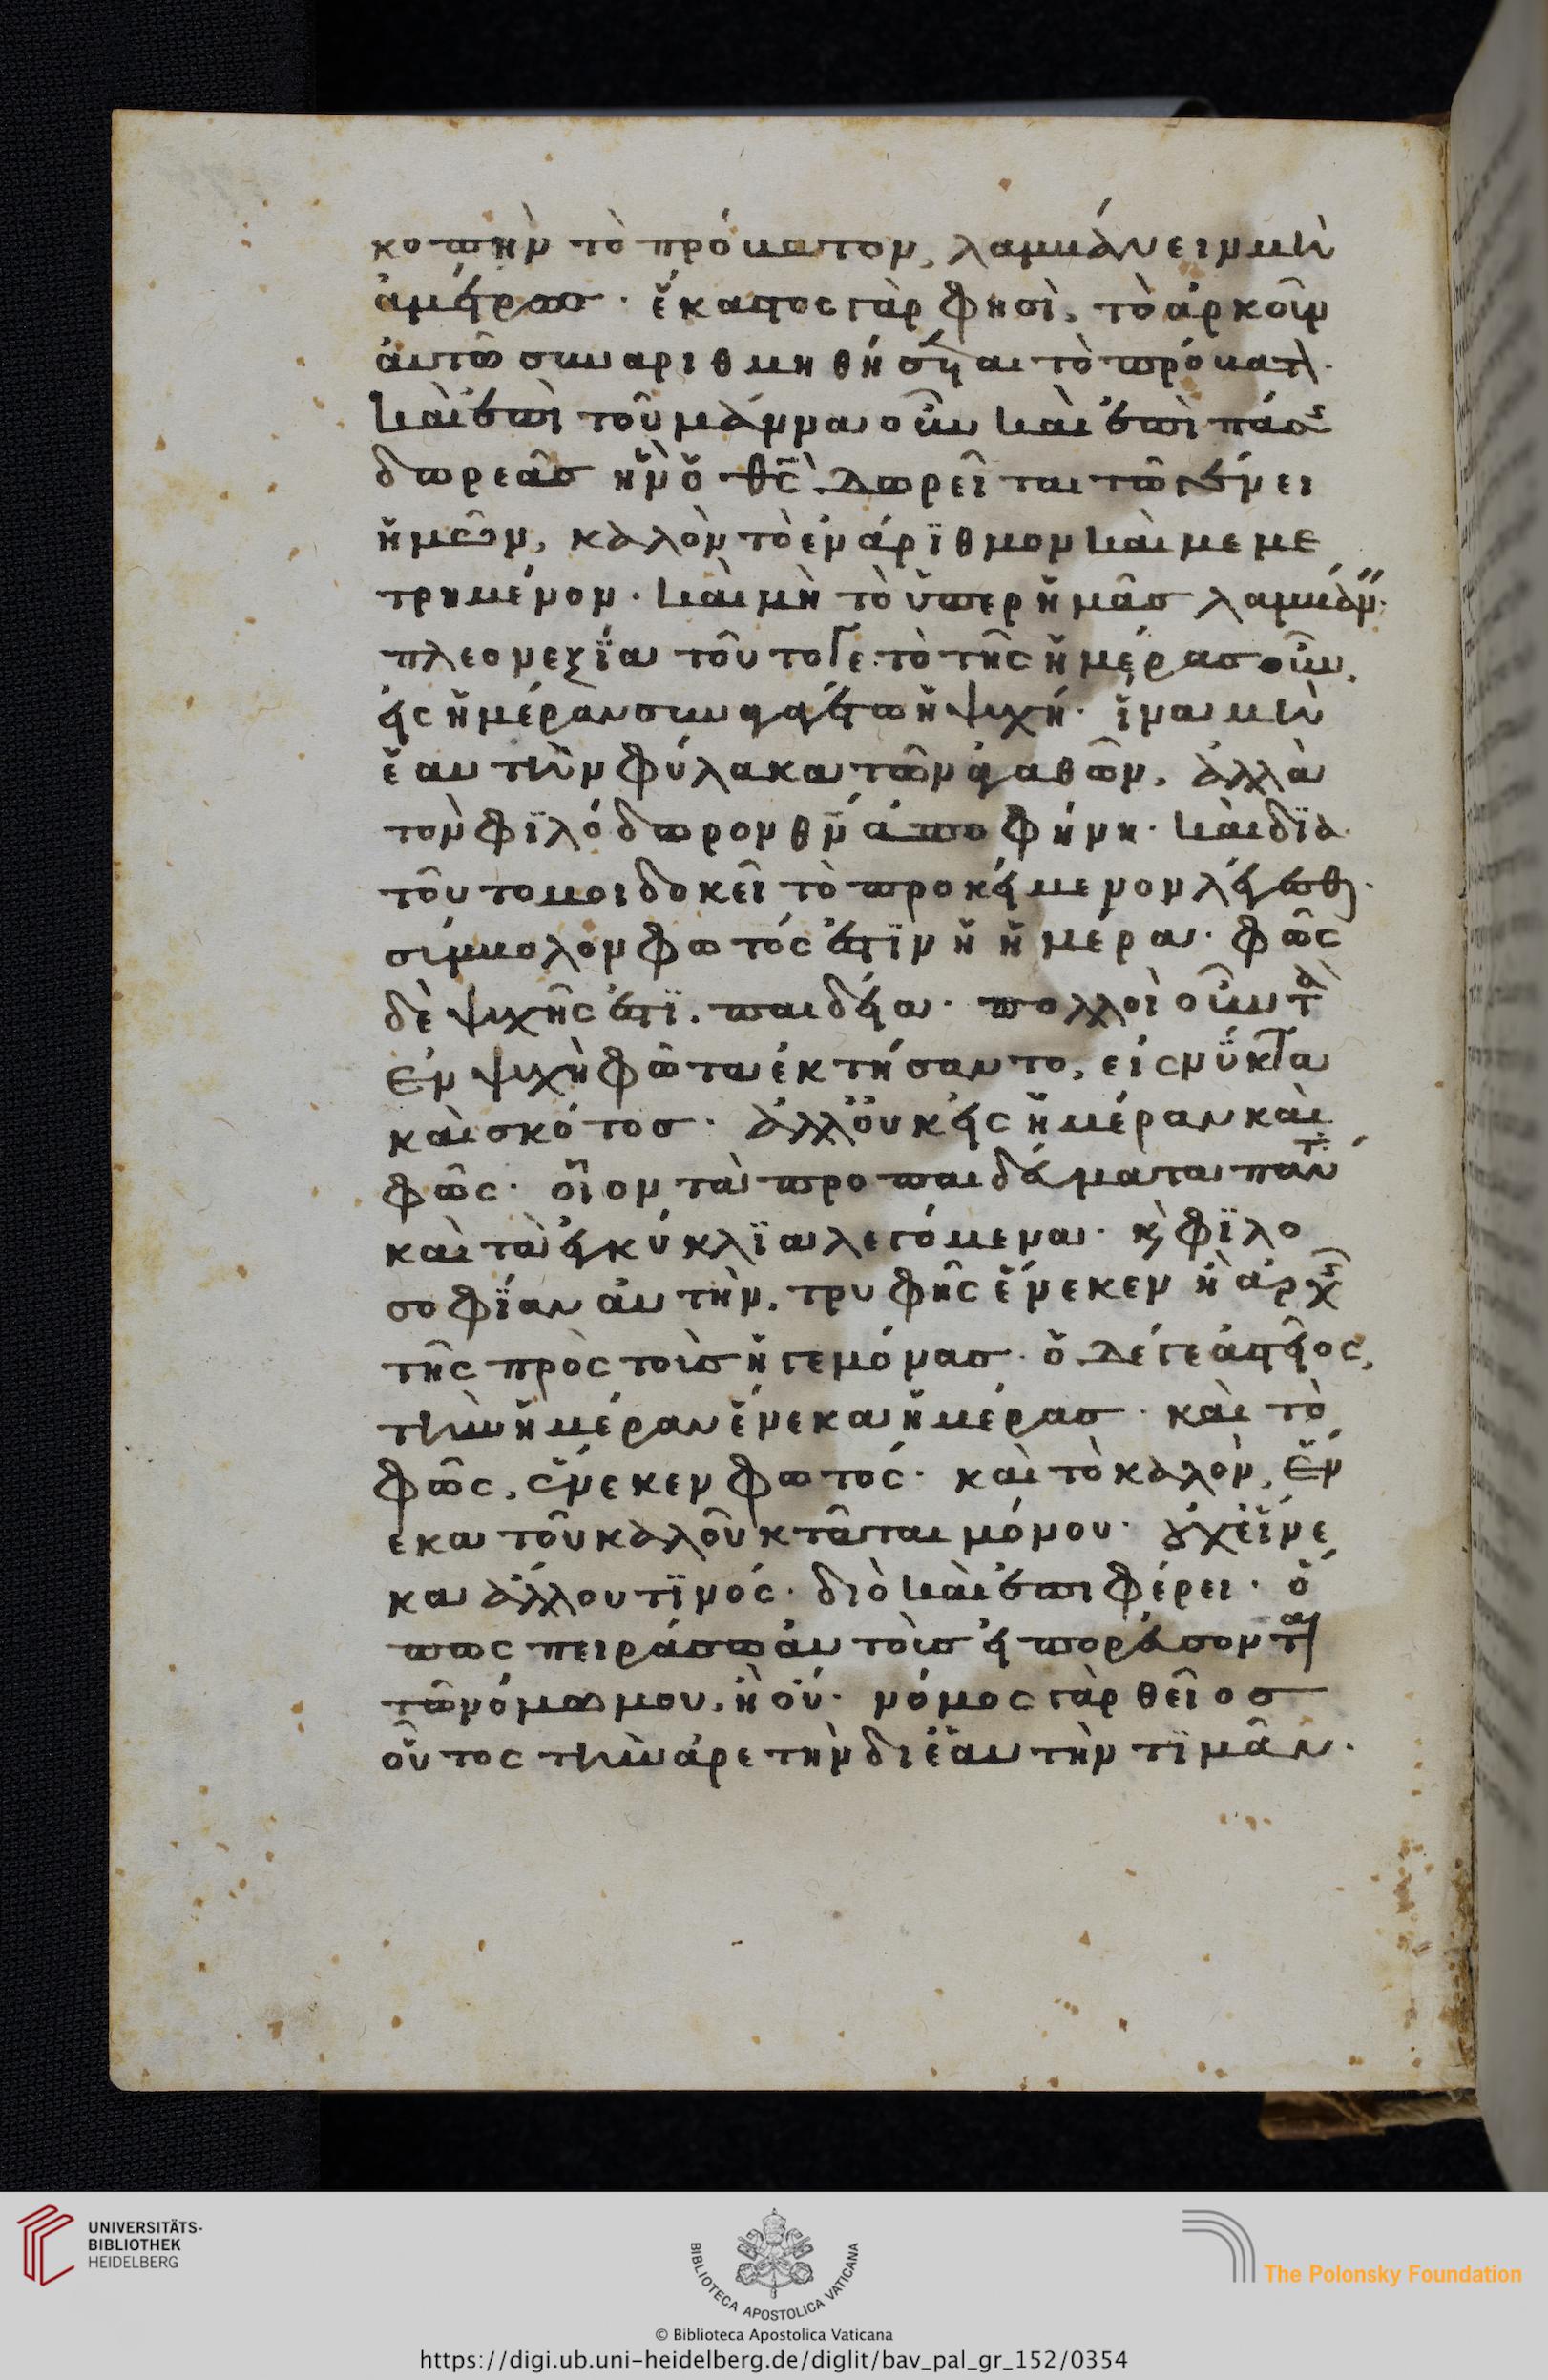 κοπὴν τὸ πρόβατον, λαμβάνειν μὴ
ἀμέτρως· ἕκαστος γὰρ φησὶ, τὸ ἀρκοῦν
αὐτῶ συναριθμηθήσεται τὸ πρόβατον·
καὶ ἐπὶ τοῦ μάννα οὖν καὶ ἐπὶ πάσης
δωρεᾶς ἣν ὁ θς̅ δωρεῖται τῶ γένει
ἡμῶν, καλὸν τὸ ἐνάρϊθμον καὶ μεμε
τρημένον· καὶ μὴ τὸ ὑπερ ἡμᾶς λαμβάνειν·
πλεονεξΐα τοῦτο γε. τὸ τῆς ἡμέρας οὖν,
εἰς ἡμέραν συναγαγέτω ἡ ψυχή· ἵνα μὴ
ἑαυτὴν φύλακα τῶν ἀγαθῶν, ἀλλὰ
τὸν φϊλόδωρον θν̅ ἀποφήνη· καὶ δϊὰ
τοῦτο μοι δοκεῖ τὸ προκείμενον λέγεσθαι·
σύμβολον φωτός ἐστϊν ἡ ἡμέρα· φῶς
δὲ ψυχῆς ἐστϊ, παιδεία· πολλοὶ οὖν τὰ
ἐν ψυχῆ φῶτα ἐκτήσαντο, εἰς νύκτα
καὶ σκότος· ἀλλ' οὐκ εἰς ἡμέραν καὶ
φῶς· οἷον τὰ προπαιδεύματα πάντα
καὶ τὰ ἐγκύκλϊα λεγόμενα· κ φϊλο
σοφΐαν αὐτὴν, τρυφῆς ἕνεκεν ἢ ἀρχῆς
τῆς πρὸς τοὺς ἡγεμόνας· ὁ δέ γε ἀστεῖος,
τὴν ἡμέραν ἕνεκα ἡμέρας· καὶ τὸ
φῶς, ἕνεκεν φωτός· καὶ τὸ καλὸν, ἕν
εκα τοῦ καλοῦ κτᾶται μόνου· οὐχ εἵνε
κα ἄλλου τϊνός· διὸ καὶ ἐπιφέρει· ὅ
πως πειράσω αὐτοὺς εἰ πορεύσονται
τῶ νόμω μου, ἢ οὔ· νόμος γὰρ θεῖος
οὗτος τὴν ἀρετὴν δι' ἑαυτὴν τϊμᾶν·
UNIVERSITÄTS-
BIBLIOTHEK
HEIDELBERG
BIBLIOTECA APOSTOLICA VATICANA
The Polonsky Foundation
© Biblioteca Apostolica Vaticana
https://digi.ub.uni-heidelberg.de/diglit/bav_pal_gr_152/0354